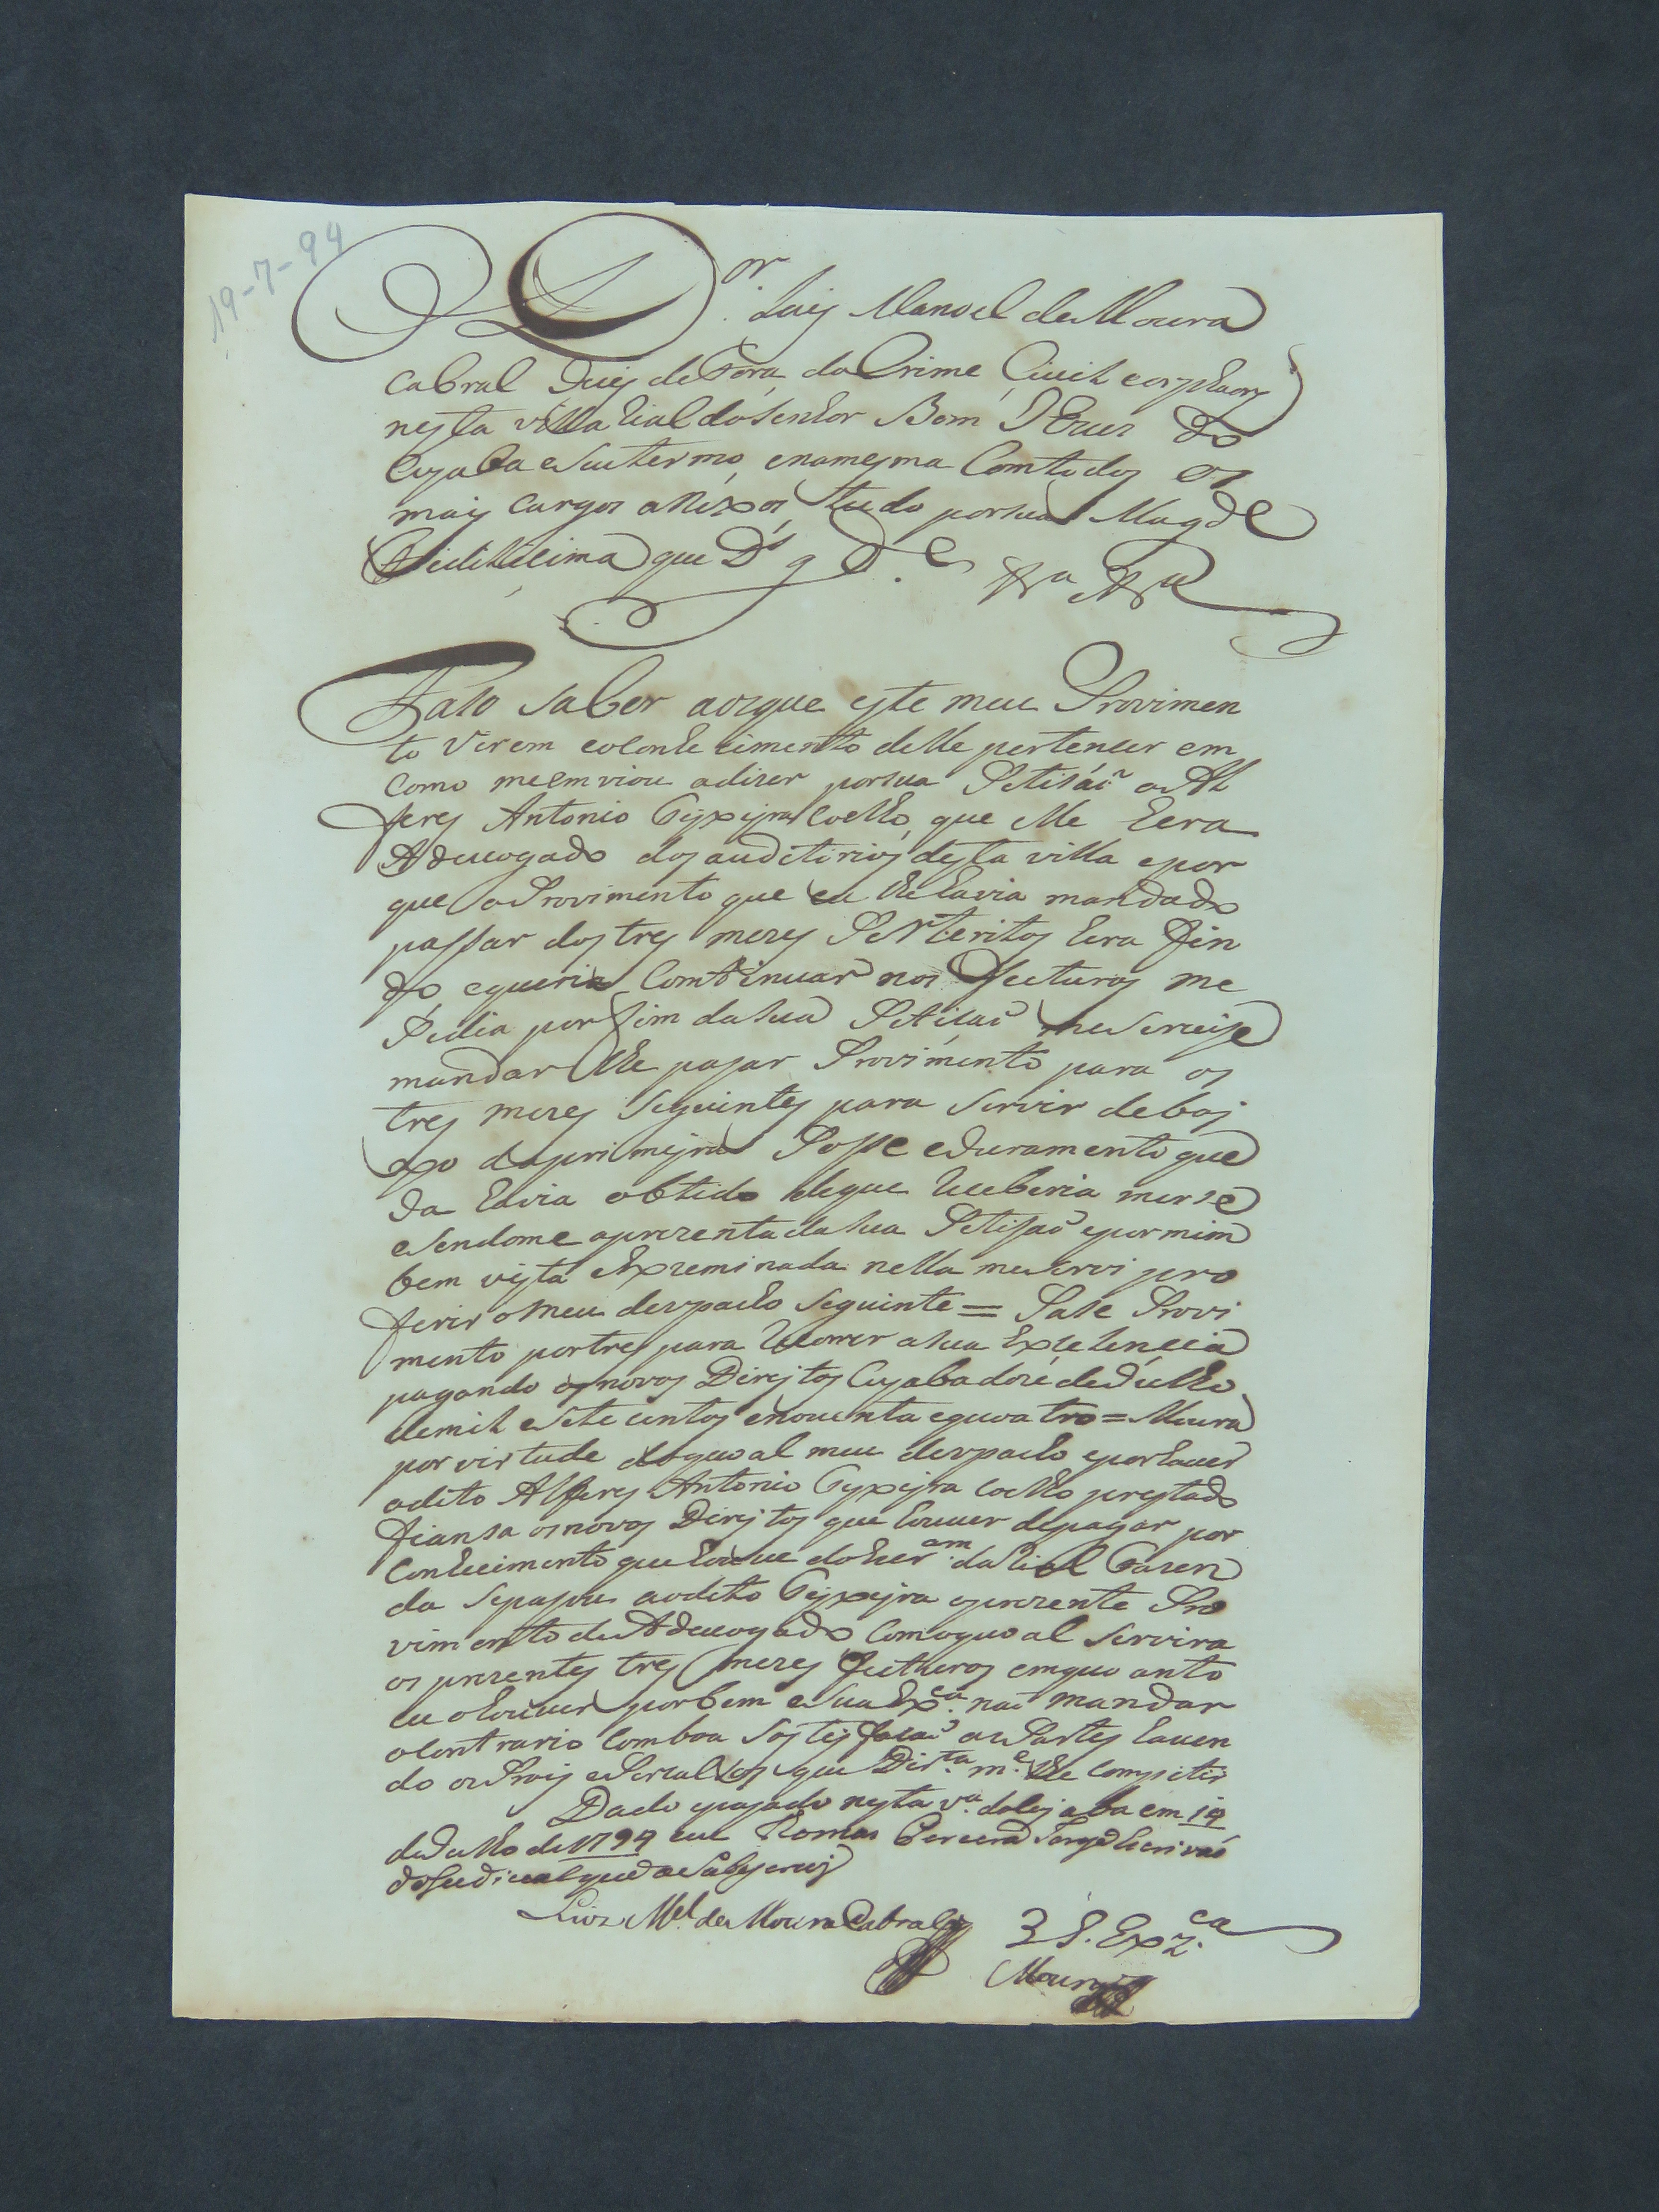 19-7-94
O D.or Luis Manoel de Moura
Cabral Juis de Fora do Crime, Civil e orphaons
nesta villa Rial do Senhor Bom Jhezus do
Cuyaba e Seu termo, e na mesma Com todos os
mais Cargos anexos tudo por Sua Magde
Fidilicima que Ds g.de &a &a
Faso Saber aos que este meu Provimen
to Virem e o Conhecimento delle pertencer em
como me emviou a dizer por sua Petisáõ o Al
feres Antonio Teyxeyra Coelho, que elle hera
Advuogado dos auditorios desta villa e por
que o Provimento que eu lhe havia mandado
passar dos tres mezes Preteritos hera fin
do, e queria Comtinuar nos fecturos me
Pedia por fim da sua Petisaõ me Servise
mandar lhe pasar Provimento para os
tres mezes Seguintes para Servir debay
xo da primeyra Posse e Juramento que
Ja havia obtido de que Receberia merse
e Sendome aprezentada sua Petisaõ e por mim
bem vista e Expreminada nella me Servi pro
ferir o meu despacho Seguinte = Pase Provi
mento por tres para Recorrer a sua Excelencia
pagando os novos Direytos Cuyaba doze de Julho
de mil e Sete centos e noventa e quoatro = Moura
por virtude do quoal meu despacho e por haver
o dito Alferes Antonio Teyxeyra Coelho prestado
fiansa os novos Direytos que houver de pagar por
Conhecimento que houve do Escr.am da Rial Fazen
da Se pasou ao dito Teyxeyra o prezente Pro
vimento de Advuogado Com o quoal Servira
os prezentes tres mezes fecturos emquoanto
eu o houver por bem e Sua Ex.ca naõ mandar
o Contrario Com boa Sastisfasaõ as Partes haven
do os Prois e Percalsos que Dir.ta m.e lhe Compitir
Dado e pasado nesta v.a do Cuyaba em 19
de Julho de 1794 eu Escrivaõ
do Judicial que
Luis M.el de Moura Cabral
3 S. Ex.ca
Moura